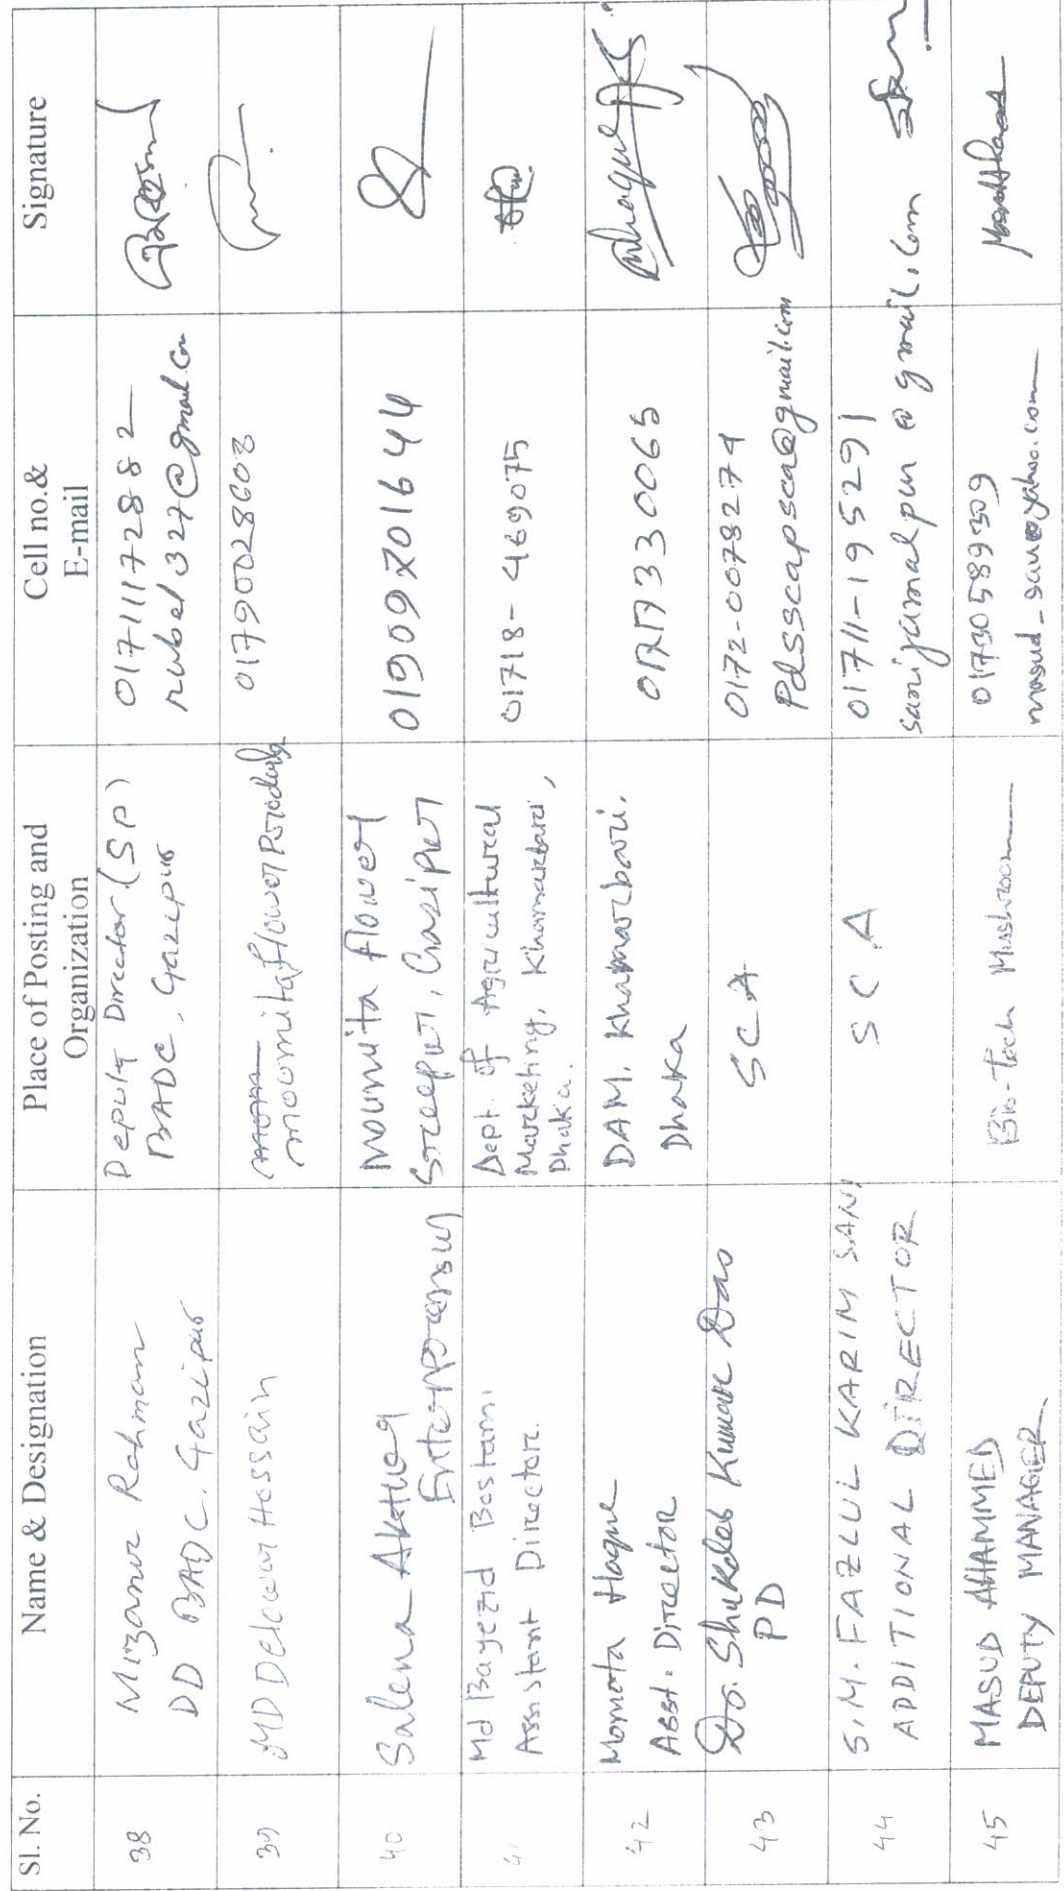 Sl. No.
Name & Designation
Place of Posting and
Organization
Cell no.&
E-mail
Signature
38
Mizanur Rahman
DD BADC, Gazipur
Deputy Director (SP)
BADC, Gazipur
01711172882
rubel327@gmail.com
39
MD Delowar Hossain
moumita flower Produc
01790028603
40
Salena Akter
Mounita flower
Sreepur, Gazipur
01909701644
41
Md Bayezid Bostami
Assistant Director.
Dept. of Agricultural
Marketing, Khamarbari,
Dhaka.
01718-469075
42
Momota Haque
Asst. Director
DAM. Khamarbari.
Dhaka
43
Dr. Shukdeb Kumar Das
PD
SCA
0172-0078274
Pdsscapsca@gmail.com
44
S.M. FAZLUL KARIM SANI
ADDITIONAL DIRECTOR
SCA
01711-195291
sanijamalpur@gmail.com
45
MASUD AHAMMED
DEPUTY MANAGER
Bio-Tech Mushroom
01730589309